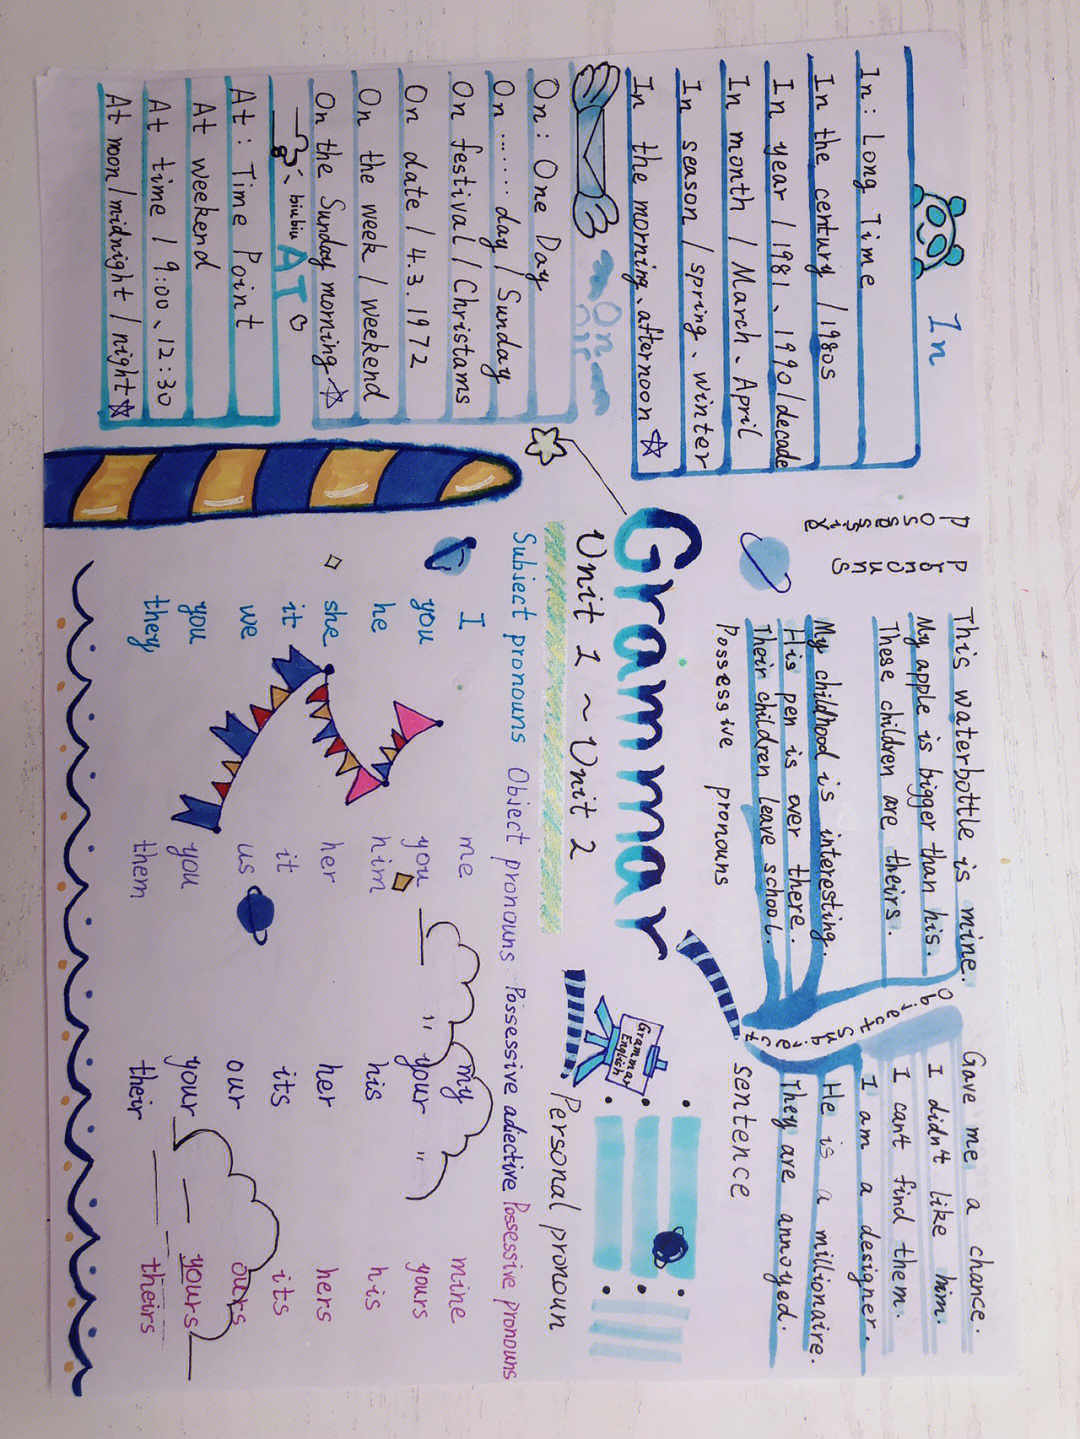 In
In: Long Time
In the century / 1980s
In year / 1981、1990/decade
In month / March、April
In season / spring、winter
In the morning、afternoon
On
On: One Day
On ........ day / Sunday
On festival / Christams
On date / 4.3.1972
On the week / weekend
On the Sunday morning
biubiu AT
At: Time Point
At weekend
At time / 9:00、12:30
At noon / midnight / night
Grammar
Unit 1 ~ Unit 2
This waterbottle is mine.
My apple is bigger than his.
These children are theirs.
My childhood is interesting.
His pen is over there.
Their children leave school.
Possessive pronouns
Object
Subject
Gave me a chance.
I didn't like him.
I can't find them.
I am a designer.
He is a millionaire.
They are annoyed.
sentence
Grammar
English
Personal pronoun
Subject pronouns Object pronouns Possessive adiective Possessive pronouns
I me my mine
you you " your " yours
he him his his
she her her hers
it it its its
we us our ours
you you your yours
they them their theirs